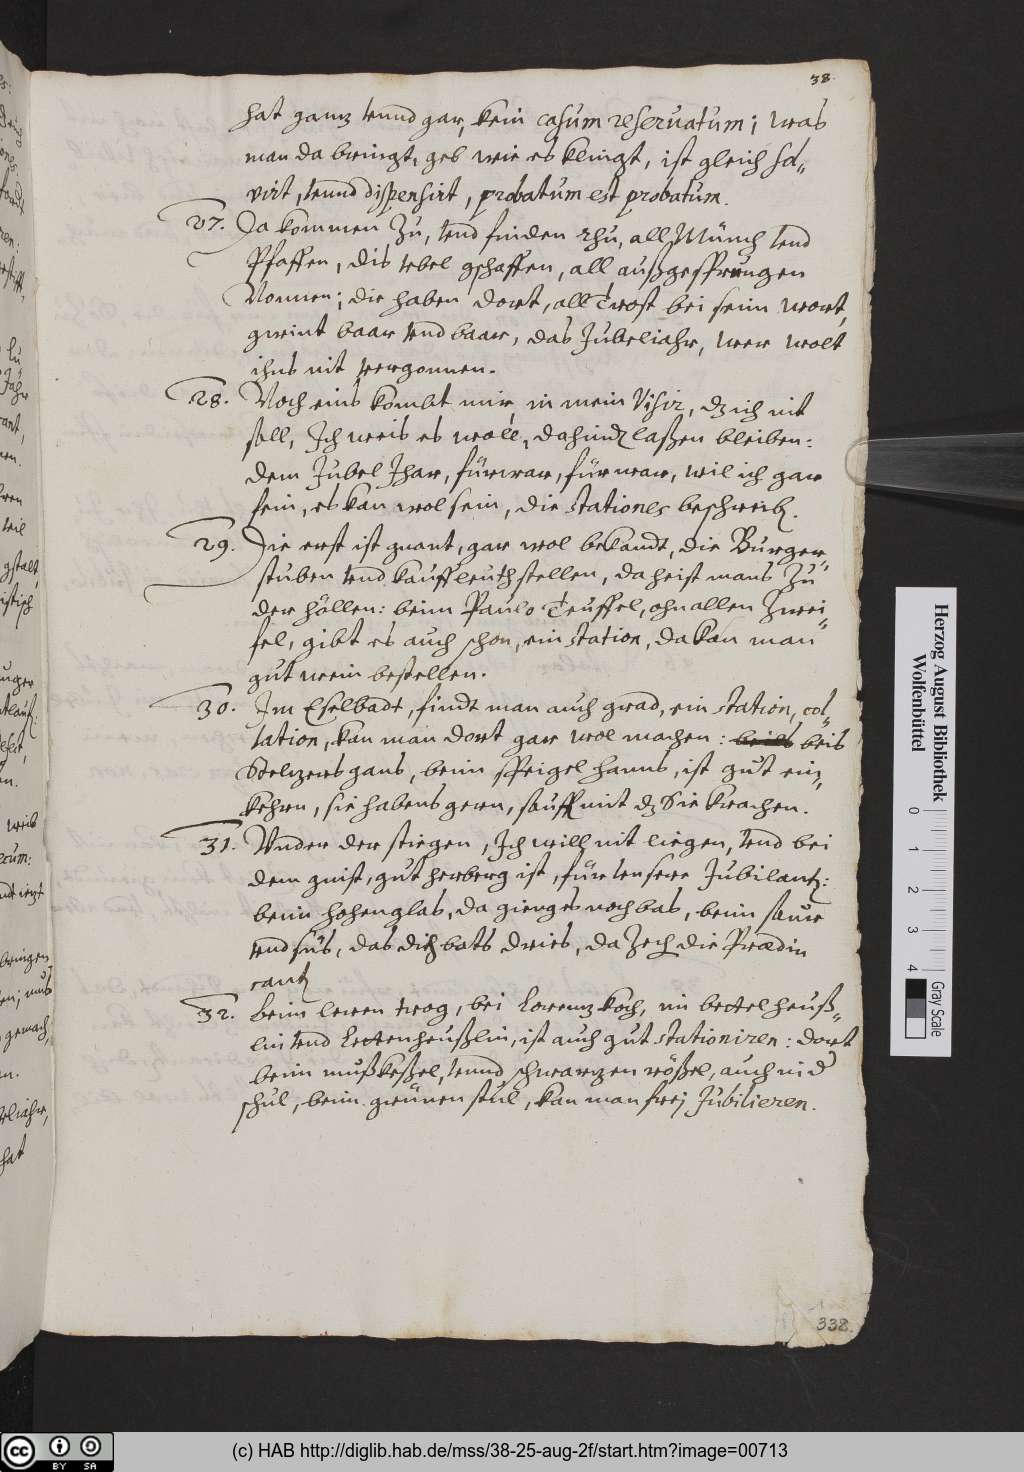 38.
hat gantz vnnd gar, kein casum reseruatum; was
man da bringt, geb wie es klingt, ist gleich sol„
virt, vnnd dispensirt, probatum est probatum.
27. Da kommen zu, vnd finden rhu, all Münch vnd
Pfaffen, dis vbel gschaffen, all außgesprungen
Nonnen; die haben dort, all trost bei seim wort,
gwint baar vnd baar, das Jubeliahr, wer wolt
ihns nit vergonnen.
28. Noch eins kombt mir, in mein Visir, dz ich nit
soll, Ich weis es woll, dahinden laßen bleiben:
dem Jubel Jhar, fürwar, fürwar, wil ich gar
fein, es kan wol sein, die stationes beschreiben.
29. Die erst ist gnant, gar wol bekandt, die Burger„
stuben vnd kauffleuth stellen, da heist mans zu
der höllen: beim Paulo Teuffel, ohn allen zwei„
fel, gibt es auch schon, ein station, da kan man
gut wein bestellen.
30. Im Eselbadt, findt man auch grad, ein station, col„
lation, kan man dort gar wol machen: beis
Stelzers gans, beim speigel hanns, ist gut ein„
kehrn, sie habens gern, sauff mit dz Sie krachen.
31. Vnder der stiegen, Ich will nit liegen, vnd bei
dem gnist, gut herberg ist, für vnsere Jubilanten:
beim hohenglas, da gienges noch bas, beim saur
vnd süs, das dich bots dries, da zech die Prædi„
canten
32. Beim leren trog, bei Lorenz koch, im bettelheuß„
lin vnd Lottenheußlin, ist auch gut stationiren: dort
beim mußkeßel, vnnd schwarzen rößel, auch in d
schul, beim grünen stul, kan man frej Jubilieren.
338.
Herzog August Bibliothek
Wolfenbüttel
0 1 2 3 4
Gray Scale
cc BY SA
(c) HAB http://diglib.hab.de/mss/38-25-aug-2f/start.htm?image=00713